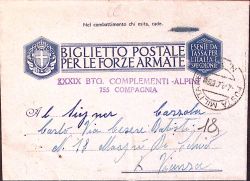 Nel combattimento chi esita, cade.
BIGLIETTO POSTALE
PER LE FORZE ARMATE
ESENTE DA
TASSA PER
L'ITALIA E
SPEDIZIONE
XXXIX BTG. COMPLEMENTI ALPINI
755 COMPAGNIA
POSTA MILITARE
Al Signor
Carlo Via Cesare Battisti
N. 18
18
Vicenza